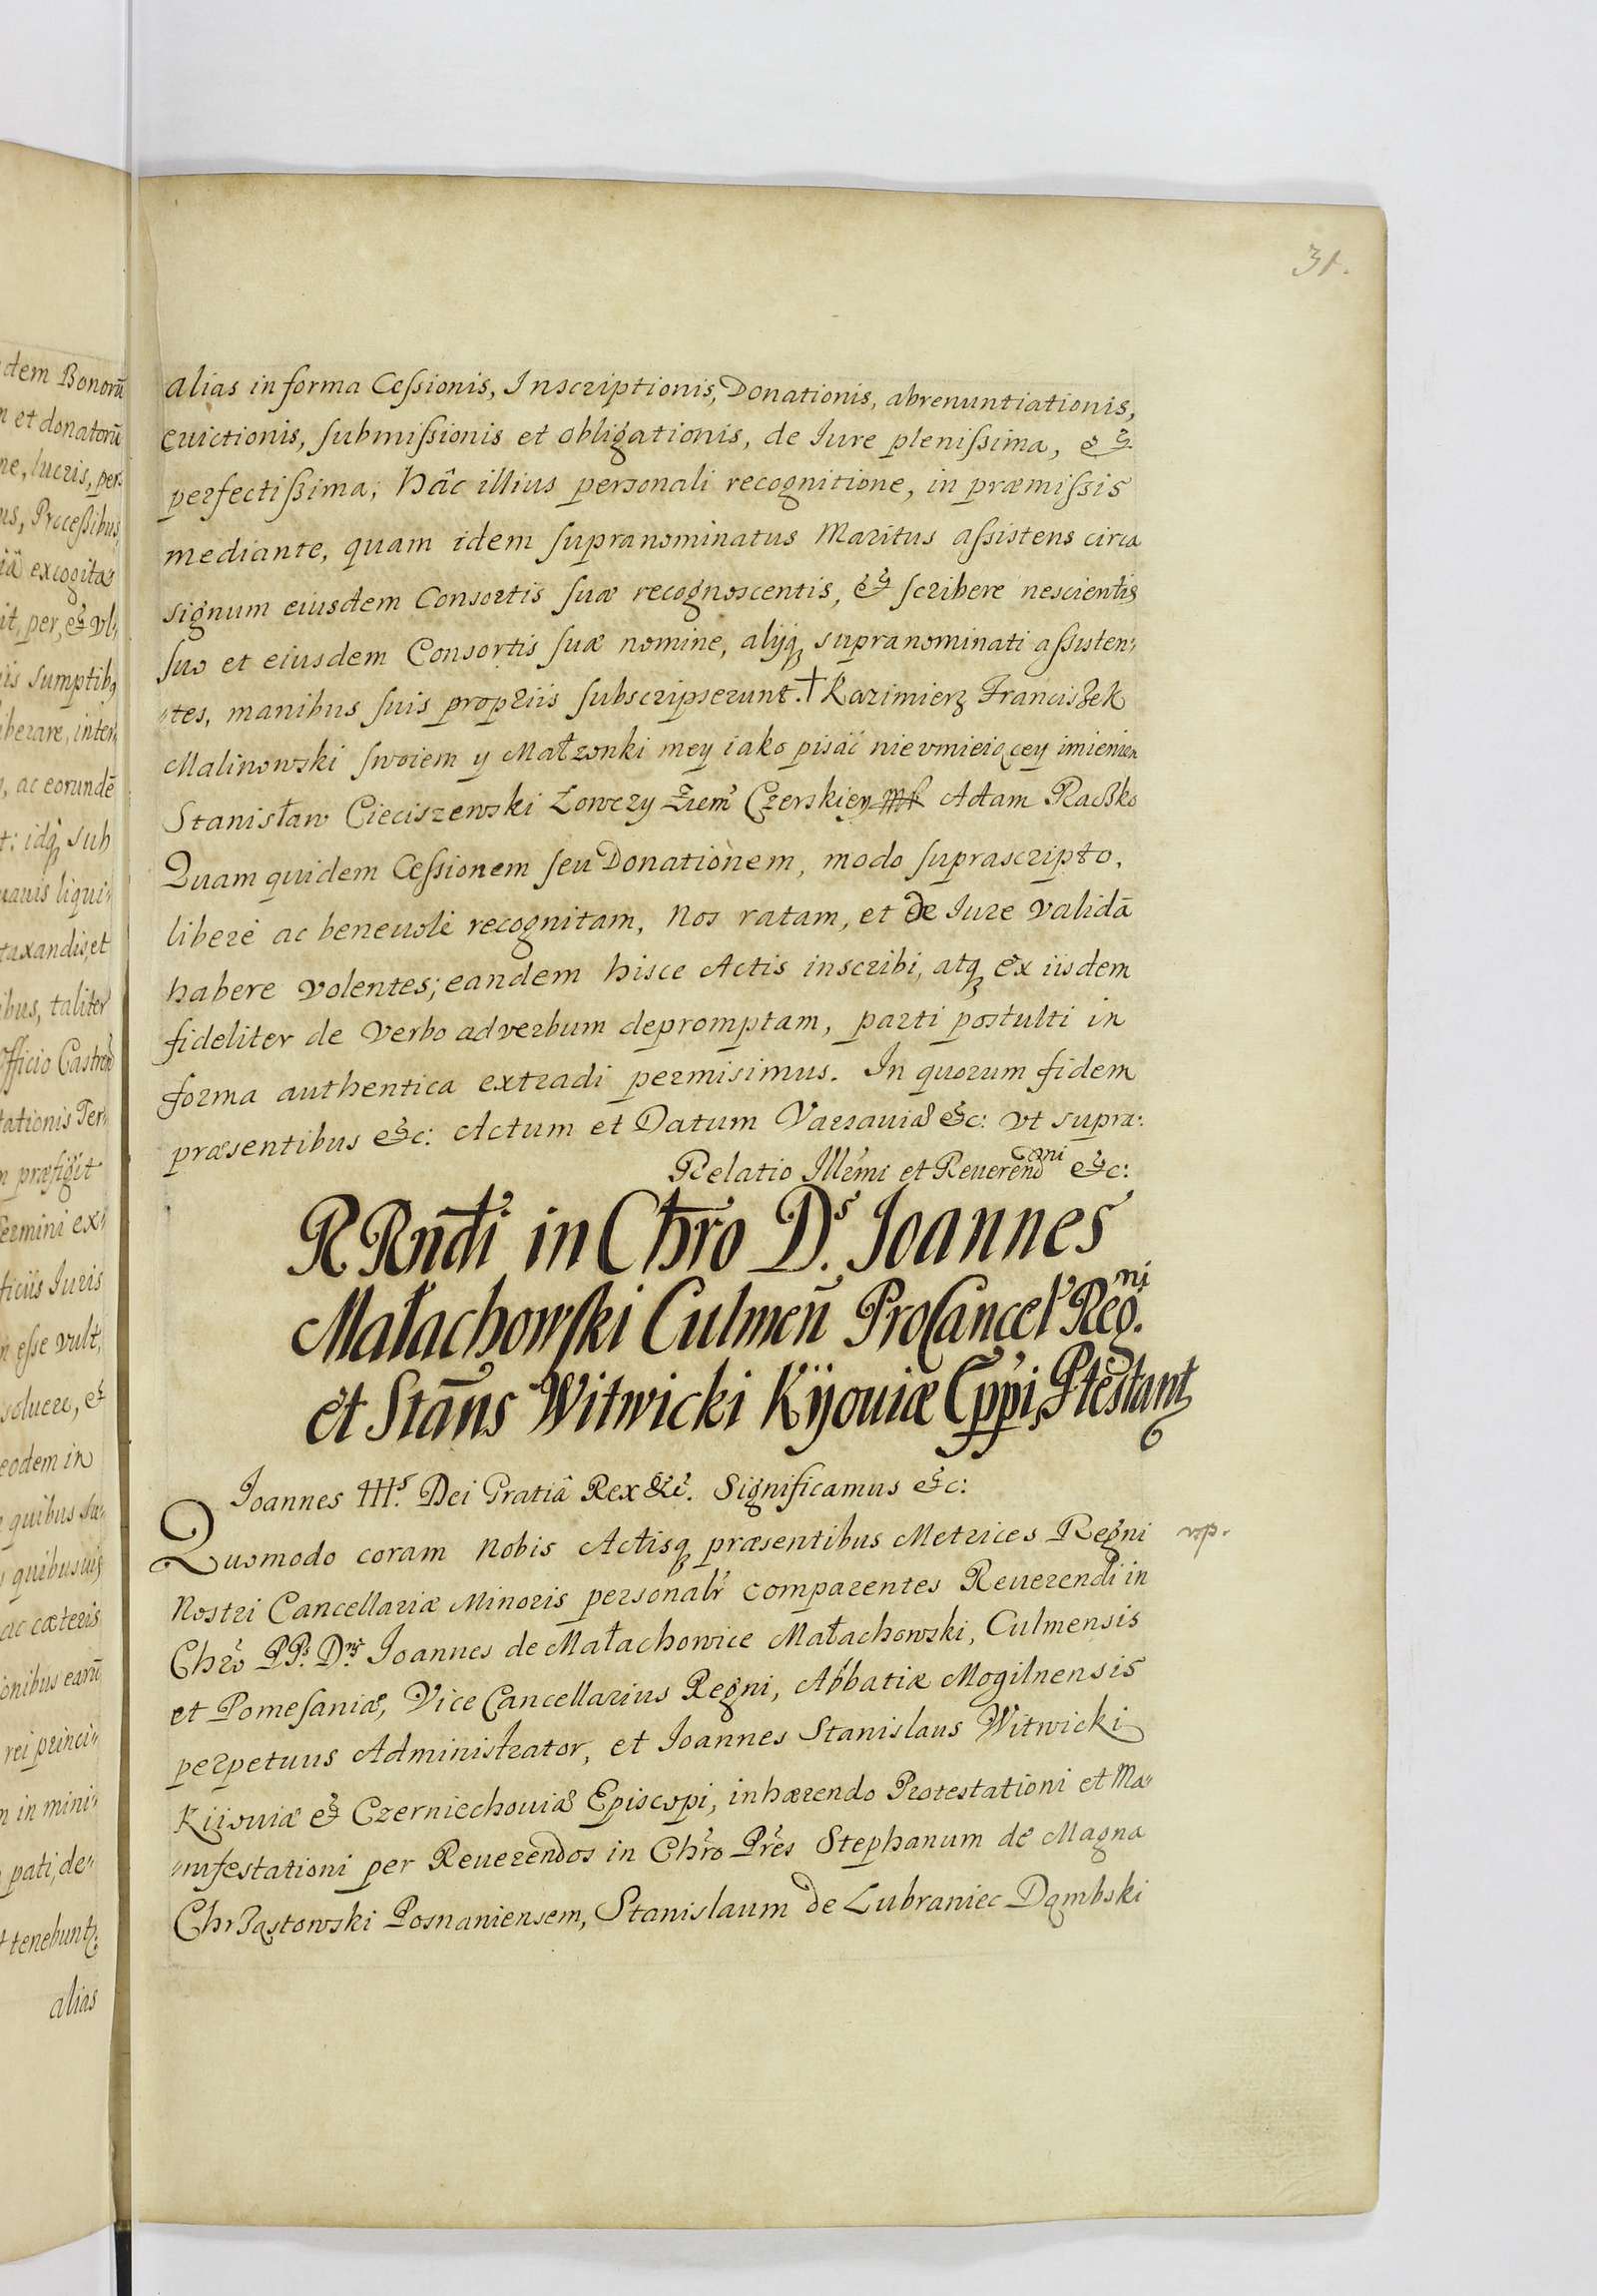 31.
alias in forma Ceſsionis, Inscriptionis, Donationis, abrenuntiationis,
euictionis, ſubmiſsionis et obligationis, de Iure pleniſsima, &
perfectiſsima; hâc illius personali recognitione, in præmiſsis
mediante, quam idem ſupranominatus Maritus aſsistens circa
signum eiusdem Consortis ſuæ recognoscentis, & ſcribere nescientis
ſuo et eiusdem Consortis ſuæ nomine, alijq₃ supranominati aſsisten„
„tes, manibus ſuis propriis ſubscripserunt. † Kazimierz Franciszek
Malinowski ſwoiem y Małzonki mey iako pisać nie vmieiącey imieniem
Stanisław Cieciszewski Łowczy Ziem̃ Czerskiey Adam Raßko
Quam quidem Ceſsionem ſeu Donationem, modo ſuprascripto,
liberè ac beneuolè recognitam, Nos ratam, et de Iure validā
habere volentes; eandem hisce Actis inscribi, atq₃ ex iisdem
fideliter de verbo ad verbum depromptam, parti postulti in
forma authentica extradi permisimus. In quorum fidem
præsentibus &c: Actum et Datum Varsauiæ &c: vt supra:
Relatio Illm̃i et Reuerend̃ &c:
R Rnd̃i in Chr̃o D.ˢ Joannes
Małachowſki Culmeñ ProCancel̃ Reg.ⁿⁱ
et Stañs Witwicki Kijouiæ Ep̃pi, Ptestant₃
Joannes IIIˢ. Dei Gratiâ Rex &c. Significamus &c:
Quomodo coram Nobis Actisq₃ præsentibus Metrices Regni
vp.
Nostri Cancellariæ Minoris personalr̃ comparentes Reuerendi in
Chr̃o PPˢ. Dⁿⁱ Joannes de Małachowice Małachowski, Culmensis
et Pomeſaniæ, Vice Cancellarius Regni, Abbatiæ Mogilnensis
perpetuus Administrator, et Joannes Stanislaus Witwicki
Kiiouiæ & Czerniechouiæ Episcopi, inhærendo Protestationi et Ma„
„nifestationi per Reuerendos in Chr̃o Pr̃es Stephanum de Magna
Chrząstowski Posnaniensem, Stanislaum de Lubraniec Dąmbski